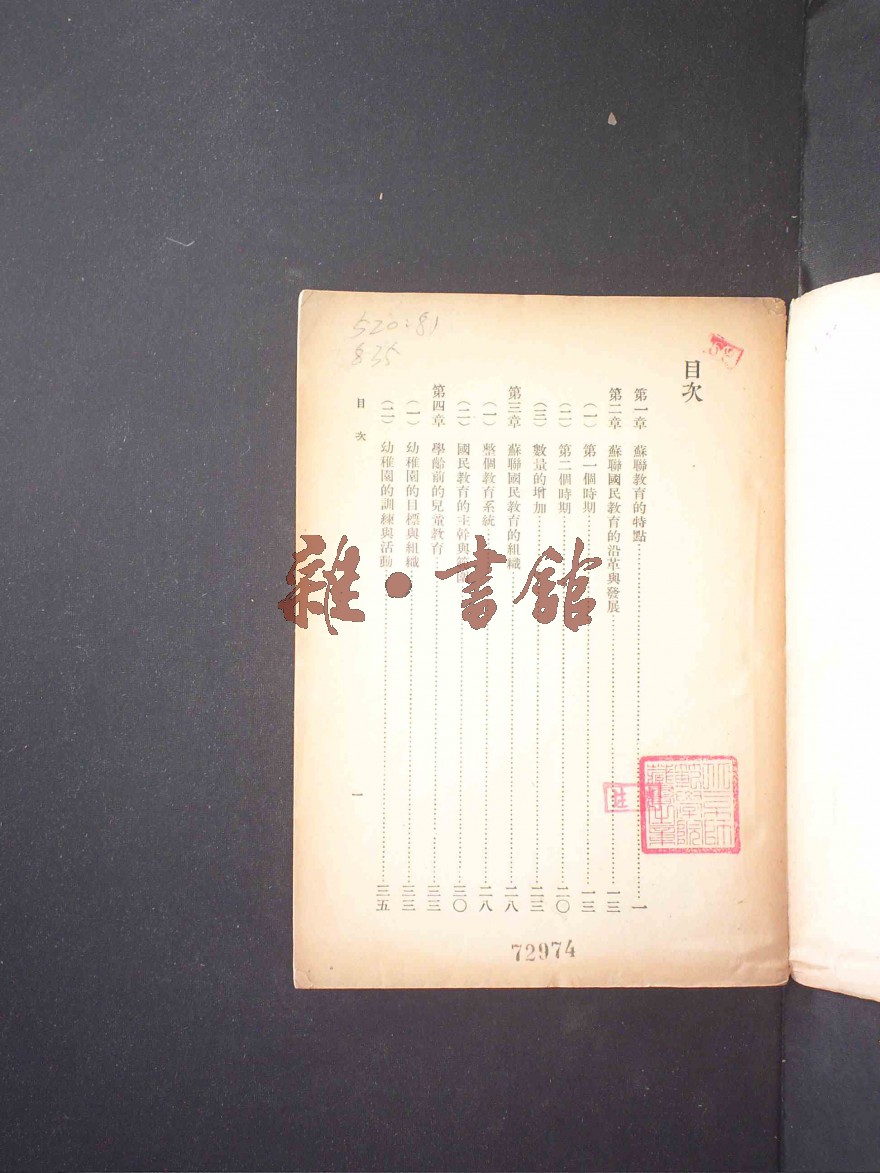 目次
第一章　蘇聯教育的特點……一
第二章　蘇聯國民教育的沿革與發展……一三
（一）　第一個時期……一三
（二）　第二個時期……二〇
（三）　數量的增加……二三
第三章　蘇聯國民教育的組織……二八
（一）　整個教育系統……二八
（二）　國民教育的主幹與……三〇
第四章　學齡前的兒童教育……三三
（一）　幼稚園的目標與組織……三三
（二）　幼稚園的訓練與活動……三五
目次
一
520.81
835
72974
雜·書館